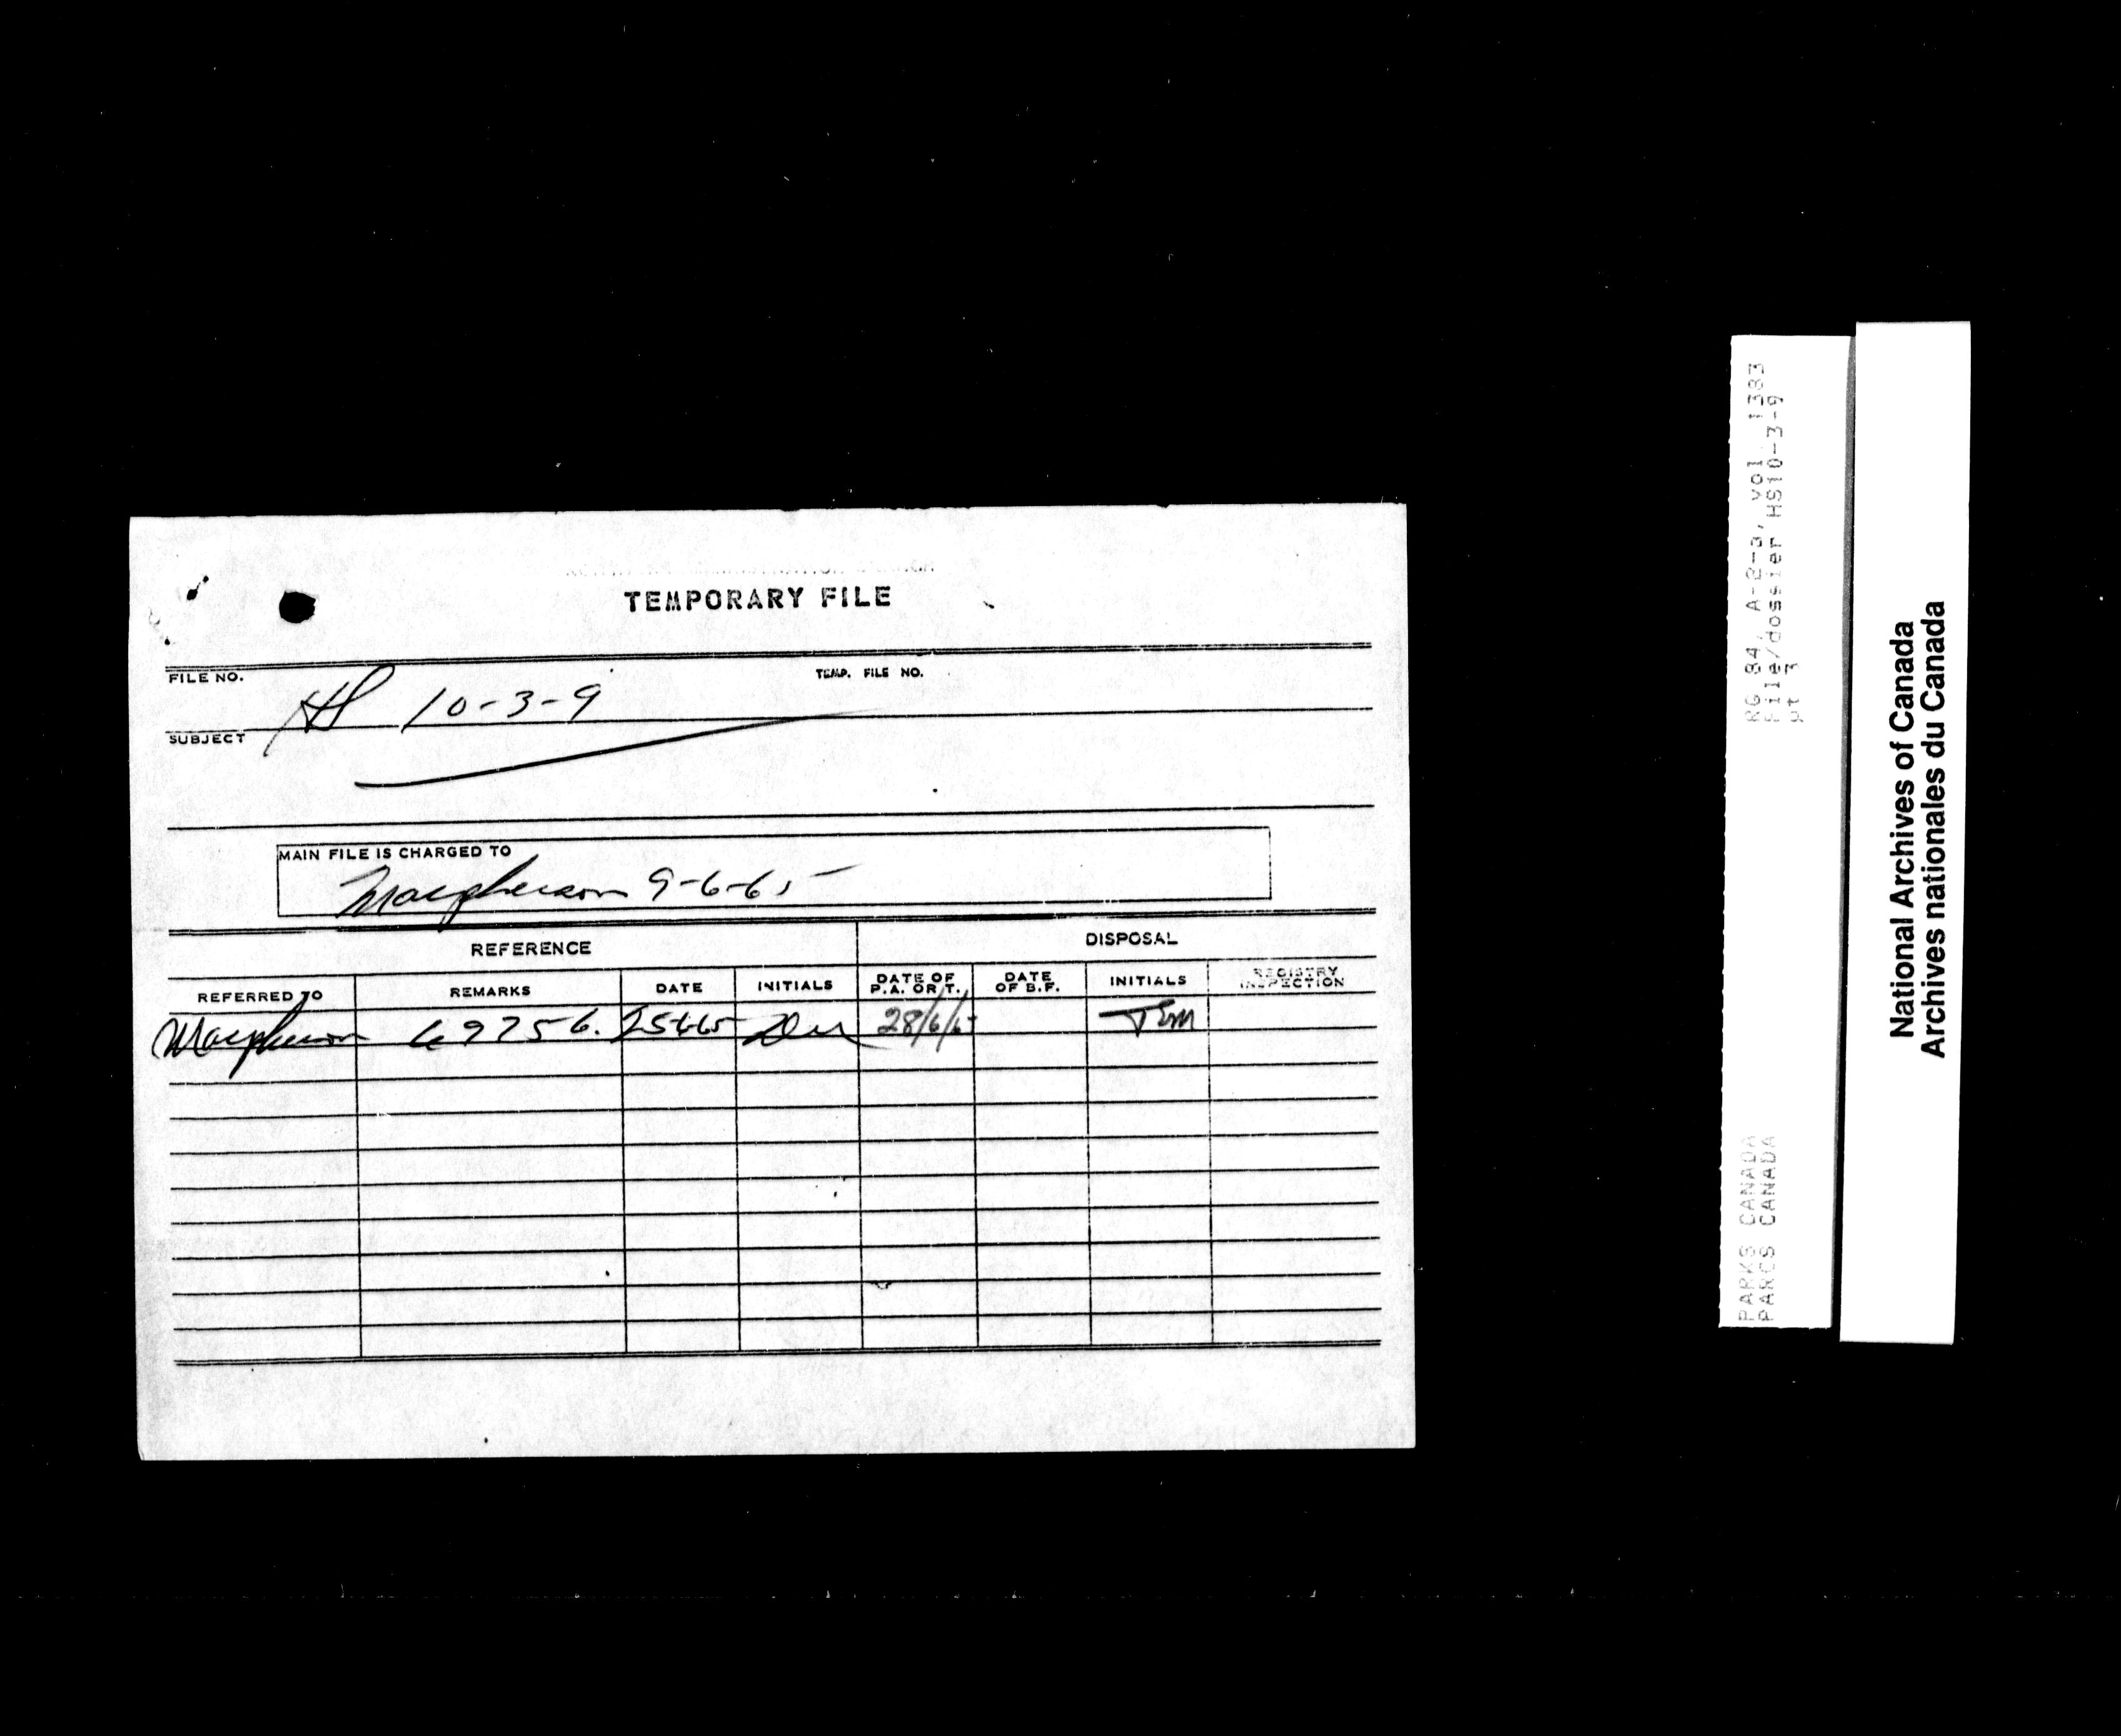 TEMPORARY FILE
FILE NO. HS 10-3-9 TEMP. FILE NO.
SUBJECT
MAIN FILE IS CHARGED TO
Macpherson 9-6-65
REFERENCE DISPOSAL
REFERRED TO REMARKS DATE INITIALS DATE OF P.A. OR T. DATE OF B.F. INITIALS REGISTRY INSPECTION
Macpherson 69756. 25-6-65 28/6/65
RG 84, A-2-a, vol. 1383
File/dossier HS10-3-9
pt 3
PARKS CANADA
PARCS CANADA
National Archives of Canada
Archives nationales du Canada